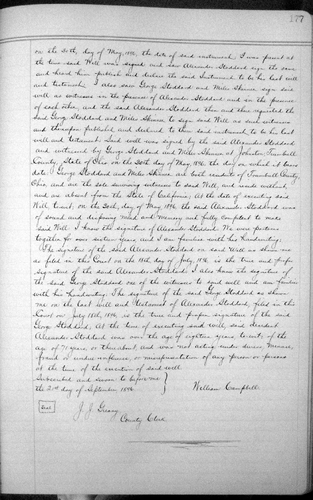 177
on the 30th day of May, 1896, the date of said instrument. I was present at
the time said Will was signed and saw Alexander Stoddard sign the same
and heard him publish and declare the said Instrument to be his last will
and testament. I also saw George Stoddard and Miles Sherwin sign said
will as witnesses in the presence of Alexander Stoddard and in the presence
of each other, and the said Alexander Stoddard then and there requested the
said George Stoddard and Miles Sherwin to sign said Will as such witnesses
and thereupon published and declared to them said instrument to be his last
will and testament. Said will was signed by the said Alexander Stoddard
and witnessed by George Stoddard and Miles Sherwin at Johnston, Trumbull
County, State of Ohio on the 30th day of May, 1896, the day on which it bears
date. George Stoddard and Miles Sherwin are both residents of Trumbull County,
Ohio, and are the sole surviving witnesses to said Will, and reside without
and are absent from the State of California; At the date of executing said
Will, to wit, on the 30th day of May, 1896, the said Alexander Stoddard was
of sound and disposing mind and memory and fully competent to make
said Will. I know the signature of Alexander Stoddard. We were partners
together for over sixteen years and I am familiar with his handwriting.
The signature of the said Alexander Stoddard on said Will as shown me
as filed in this Court on the 18th day of July, 1896, is the true and proper
signature of the said Alexander Stoddard. I also know the signature of
the said George Stoddard one of the witnesses to said will and am familiar
with his handwriting. The signature of the said George Stoddard as shown
me on the last will and Testament of Alexander Stoddard, filed in this
Court on July 18th, 1896, is the true and proper signature of the said
George Stoddard. At the time of executing said will said decedent
Alexander Stoddard was over the age of eighteen years to wit, of the
age of 71 years, or thereabout and was not acting under duress, menace,
fraud or undue influence, or misrepresentation of any person or persons
at the time of the execution of said will.
Subscribed and sworn to before me
the 21st day of September, 1896
William Campbell
Seal
J. J. Greary
County Clerk